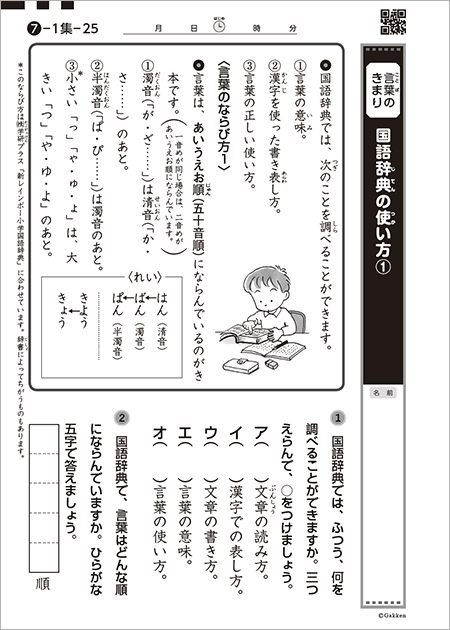 ❼-1集-25
月　日　はじめ　時　分
言葉のきまり
ことば
国語辞典の使い方①
じてん　つか　かた
名前
●国語辞典では、次のことを調べることができます。
①言葉の意味。
②漢字を使った書き表し方。
③言葉の正しい使い方。
〈言葉のならび方1〉
●言葉は、あいうえお順(五十音順)にならんでいるのがき
本です。(一音めが同じ場合は、二音めが
あいうえお順にならんでいます。)
①濁音(「が・ざ……」)は清音(「か・
さ……」)のあと。
②半濁音(「ぱ・ぴ……」)は濁音のあと。
③小さい「っ」「ゃ・ゅ・ょ」は、大
きい「つ」「や・ゆ・よ」のあと。
〈れい〉
はん(清音)
ばん(濁音)
ぱん(半濁音)
きよう
きょう
*このならび方は㈱学研プラス「新レインボー小学国語辞典」に合わせています。辞書によってちがうものもあります。
1 国語辞典では、ふつう、何を
調べることができますか。三つ
えらんで、○をつけましょう。
ア(　)文章の読み方。
イ(　)漢字での表し方。
ウ(　)文章の書き方。
エ(　)言葉の意味。
オ(　)言葉の使い方。
2 国語辞典で、言葉はどんな順
にならんでいますか。ひらがな
五字で答えましょう。
順
©Gakken